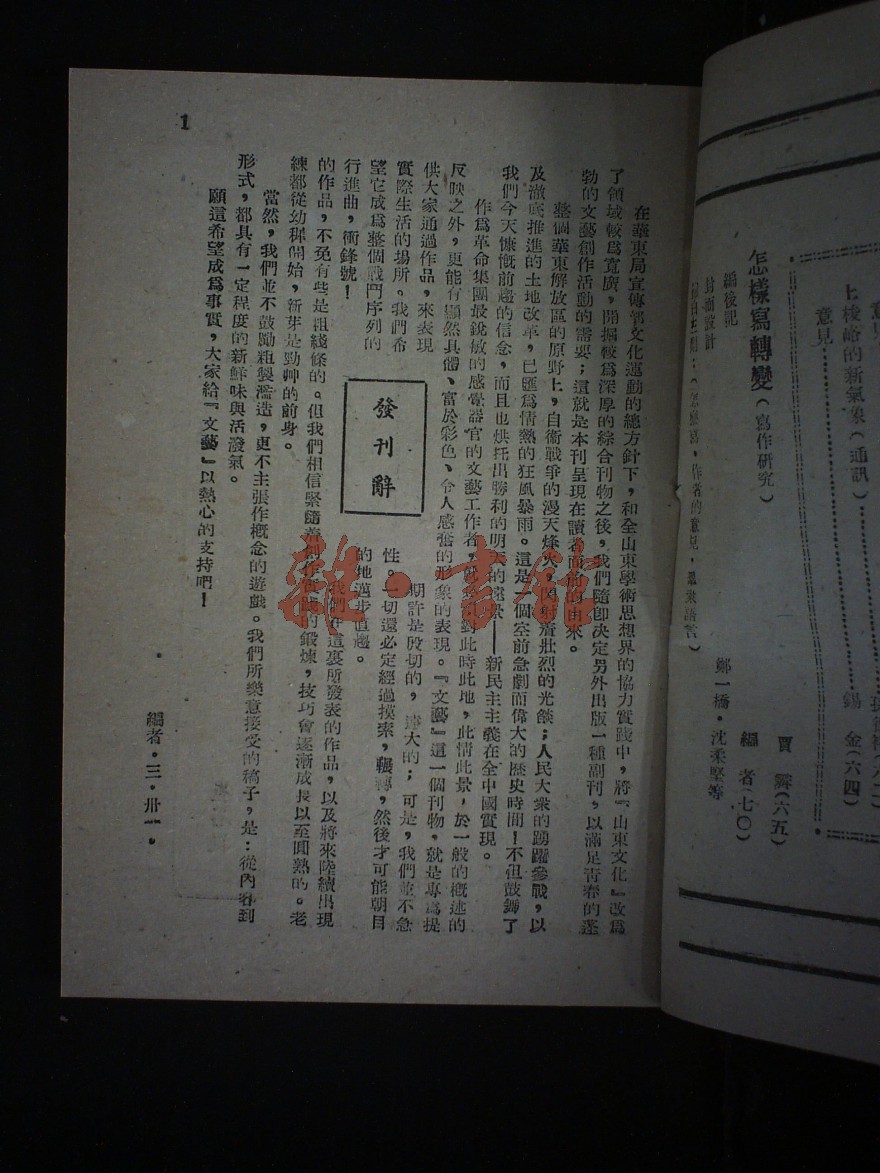 意見
上棱峪的新氣象(通訊)
錫 金(六四)
意見
怎樣寫轉變(寫作研究)
賈 霽(六五)
編後記
編 者(七〇)
封面設計
鄭一橋・沈柔堅等
作者的意見,羣衆語言)
在華東局宣傳部文化運動的總方針下,和全山東學術思想界的協力實踐中,將『山東文化』改爲
了領域較爲寬廣,開掘較爲深厚的綜合刊物之後,我們隨卽決定另外出版一種副刊,以滿足靑春的蓬
勃的文藝創作活動的需要;這就是本刊呈現在讀者面前的由來。
整個華東解放區的原野上,自衞戰爭的漫天烽火,閃射着壯烈的光燄;人民大衆的踴躍參戰,以
及澈底推進的土地改革,已匯爲情熱的狂風暴雨。這是一個空前急劇而偉大的歷史時間!不但鼓舞了
我們今天慷慨前趨的信念,而且也烘托出勝利的明天的遠景——新民主主義在全中國實現。
作爲革命集團最銳敏的感覺器官的文藝工作者,對此時此地,此情此景,於一般的槪述的
反映之外,更能有顯然具體、富於彩色、令人感奮的形象的表現。『文藝』這一個刊物,就是專爲提
供大家通過作品,來表現
實際生活的場所。我們希
望它成爲整個戰鬥序列的
行進曲,衝鋒號!
發刊辭
期許是殷切的,遠大的;可是,我們並不急
性。一切還必定經過摸索,輾轉,然後才可能朝目
的地邁步直趨。
我們在這裏所發表的作品,以及將來陸續出現
的作品,不免有些是粗綫條的。但我們相信緊隨着創作實踐的鍛煉,技巧會逐漸成長以至圓熟的。老
練都從幼穉開始,新芽是勁艸的前身。
當然,我們並不鼓勵粗製濫造,更不主張作槪念的遊戲。我們所樂意接受的稿子,是:從內容到
形式,都具有一定程度的新鮮味與活潑氣。
願這希望成爲事實,大家給『文藝』以熱心的支持吧!
編者・三・卅一・
1
雜・書館